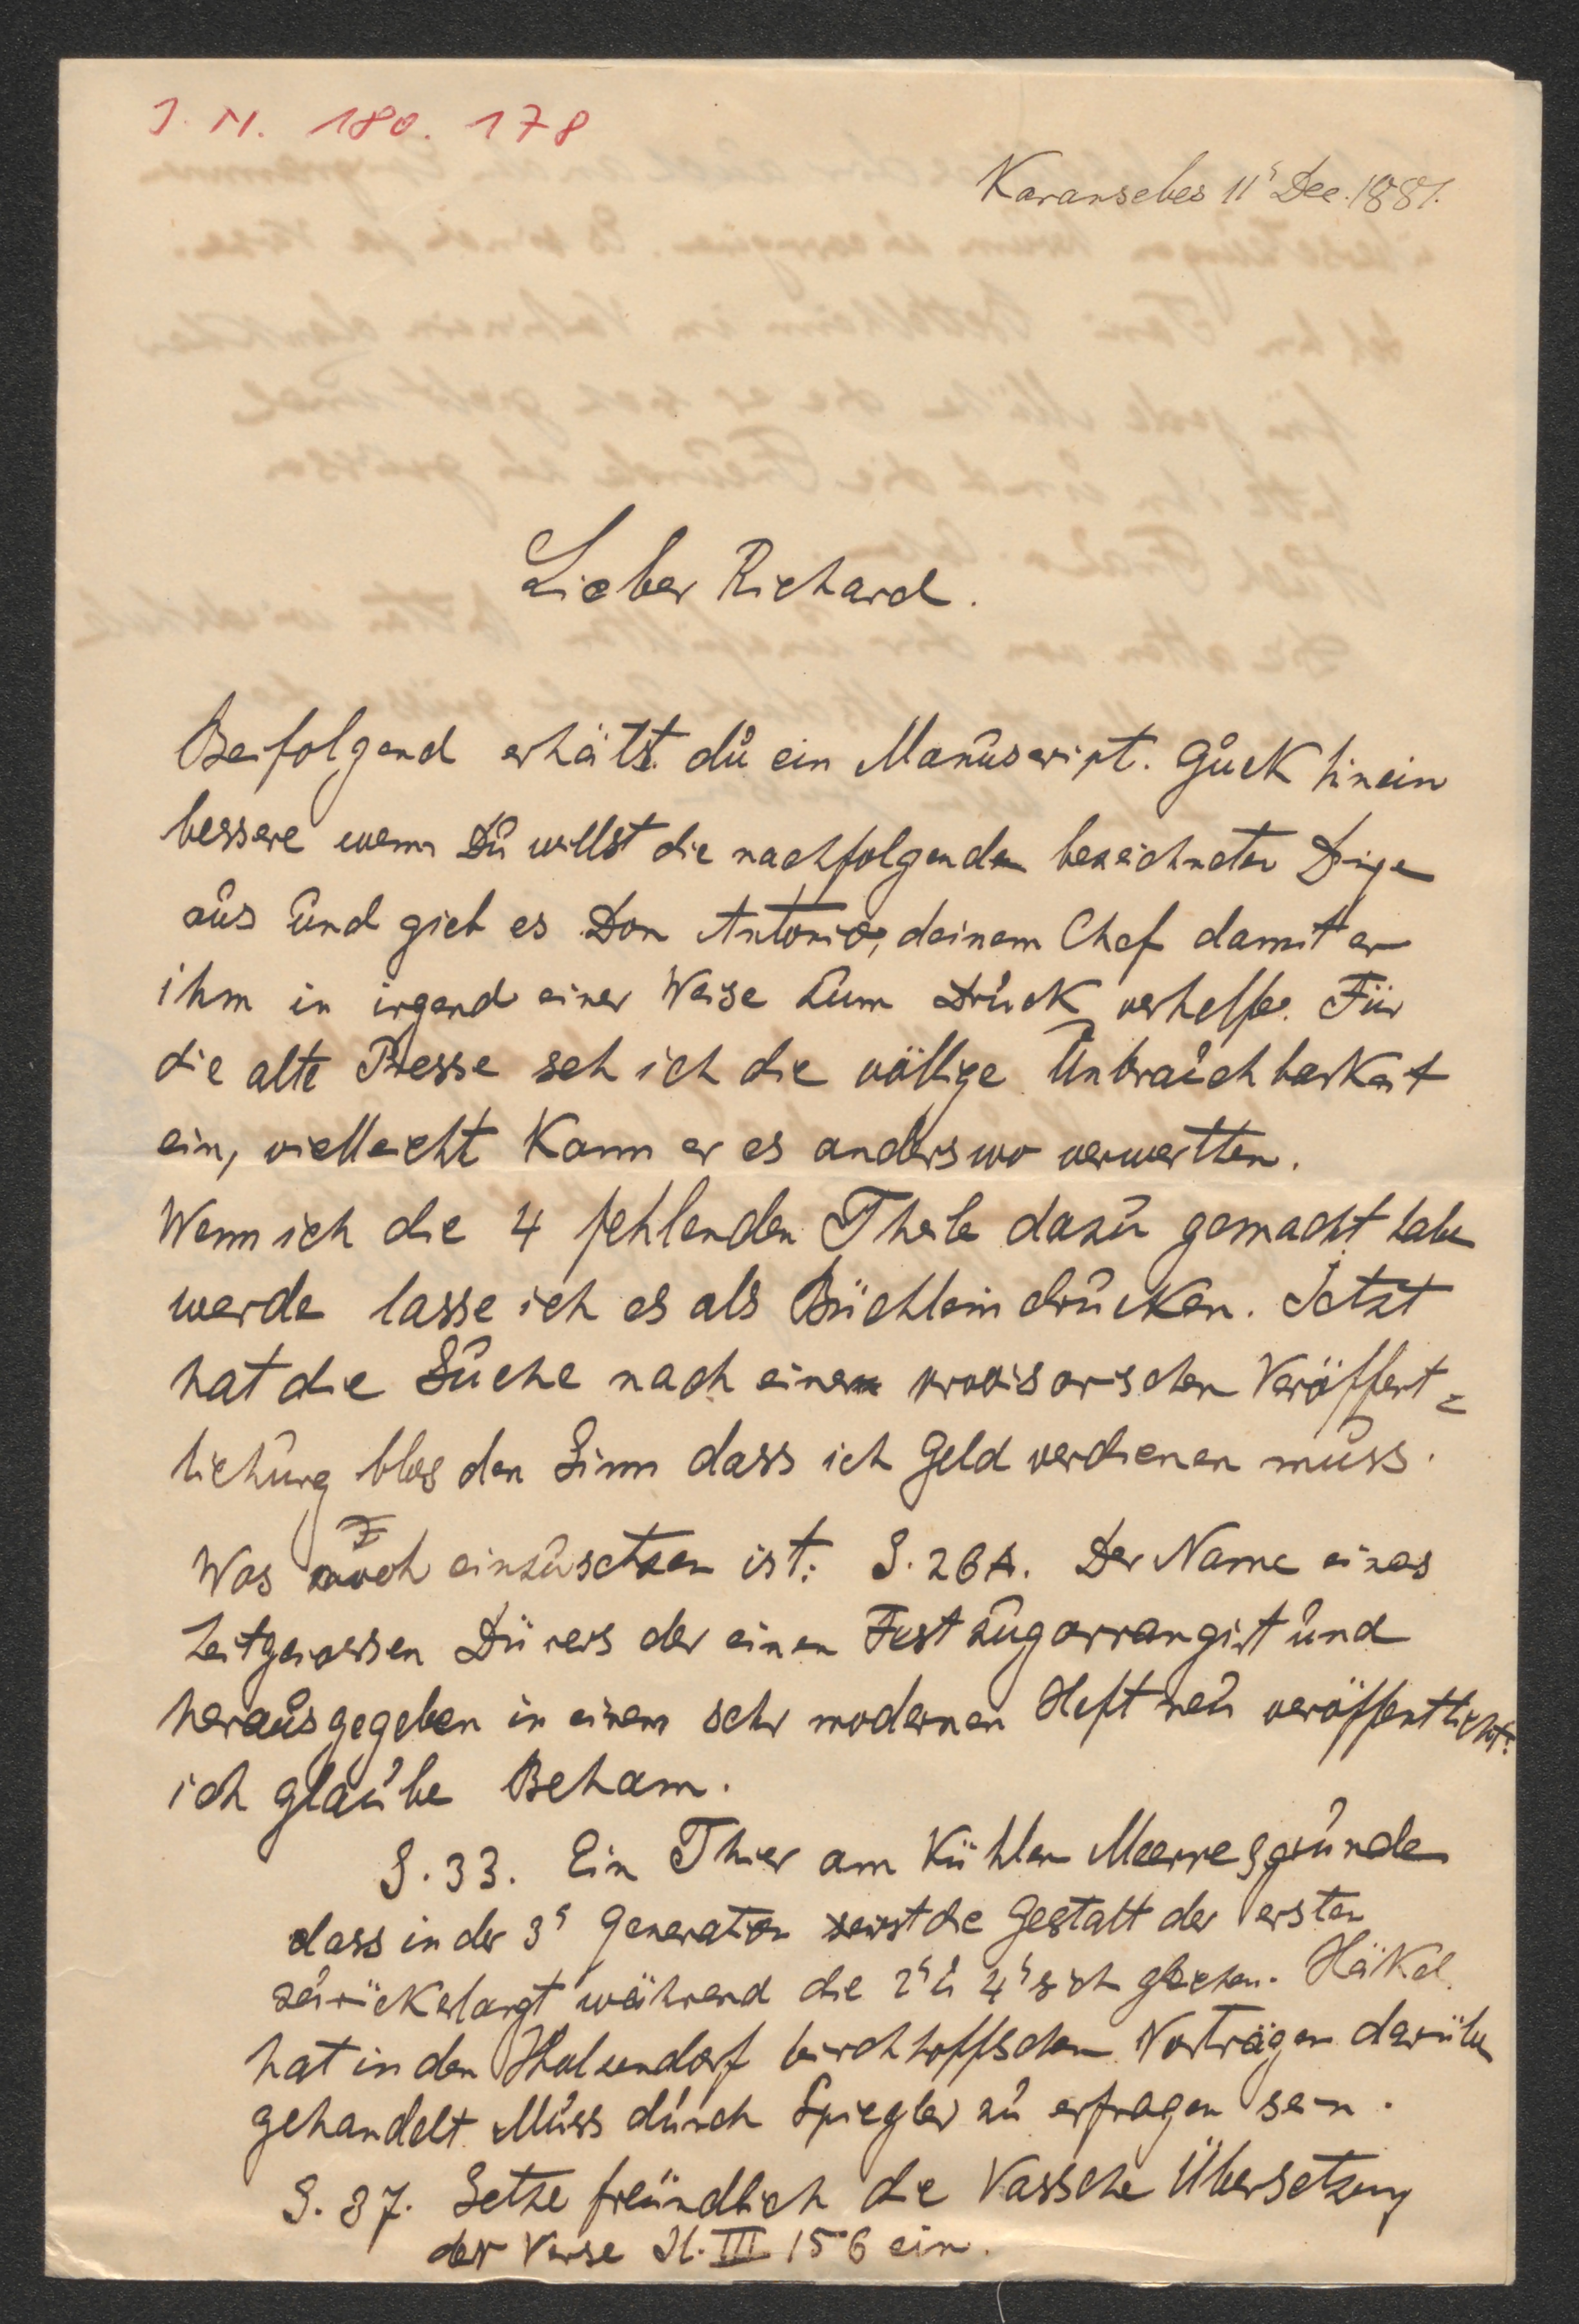 J. N. 180. 178
Karansebes 11ˢ Dec. 1881.
Lieber Richard.
Beifolgend erhältst dü ein Manüscript. Gück hinein
bessere wenn Dü willst die nachfolgenden bezeichneten Dinge
aus und gieb es Don Antonio, deinem Chef damit er
ihm in irgend einer Weise zum Druck verhelfe. Für
die alte Presse seh ich die völlige Unbrauchbarkeit
ein, vielleicht kann er es anderswo verwerthen.
Wenn ich die 4 fehlenden Theile dazu gemacht habe
werde lasse ich es als Büchlein drucken. Jetzt
hat die Suche nach einer provisorischen Veröffent=
lichung blos den Sinn dass ich Geld verdienen muss.
Was noch einzusetzen ist: S. 26. Der Name eines
Zeitgenossen Dürers der einen Festzug arrangirt und
herausgegeben in einem sehr modernen Heft neu veröffentlicht:
ich glaube Beham.
S. 33. Ein Thier am kühlen Meeresgrunde
dass in der 3ˢ Generation die Gestalt der ersten
zurückerlangt während die 2ˢ u 4ˢ sich gleichen. Häkel
hat in den Holzendorf Virchhoffschen Vorträgen darüber
gehandelt. Muss durch Spiegler zu erfragen sein.
S. 37. Setze freundlich die Vossche Übersetzung
der Verse Il. III 156 ein.